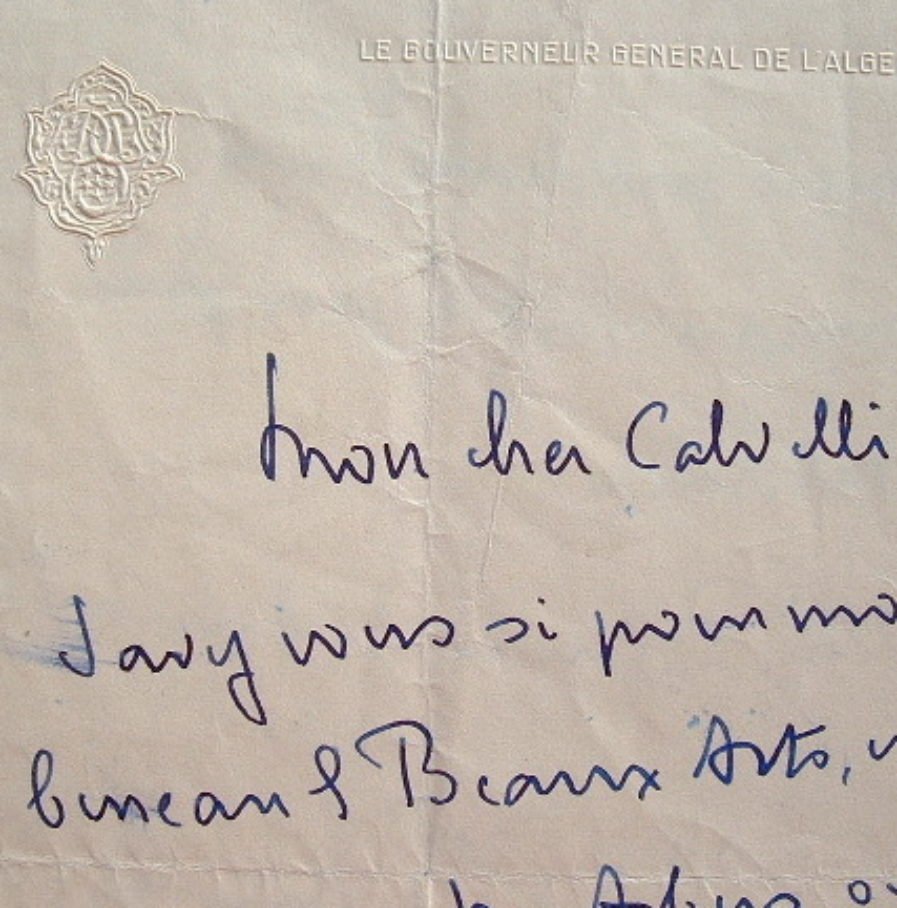 LE GOUVERNEUR GENERAL DE L'ALGE
Mon cher Calvelli
Savez vous si pour mo
bureau des Beaux Arts,